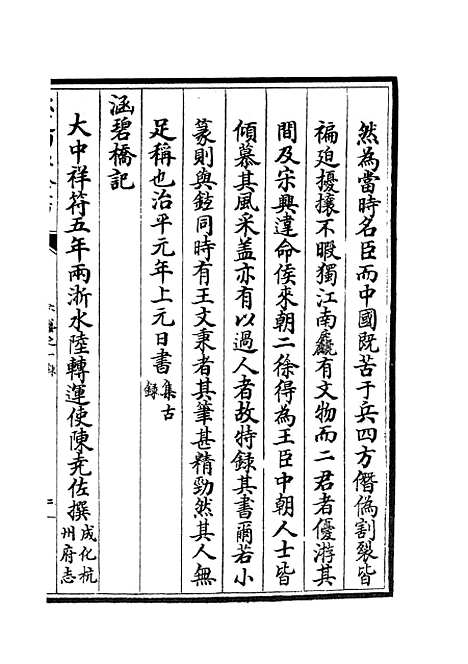 然為當時名臣而中國既苦于兵四方僭偽割裂皆
褊迫擾攘不暇獨江南粗有文物而二君者優游其
間及宋興違命侯來朝二徐得為王臣中朝人士皆
傾慕其風采盖亦有以過人者故特録其書爾若小
篆則與鉉同時有王文秉者其筆甚精勁然其人無
足稱也治平元年上元日書集古
録
涵碧橋記
大中祥符五年兩浙水陸轉運使陳堯佐撰成化杭
州府志